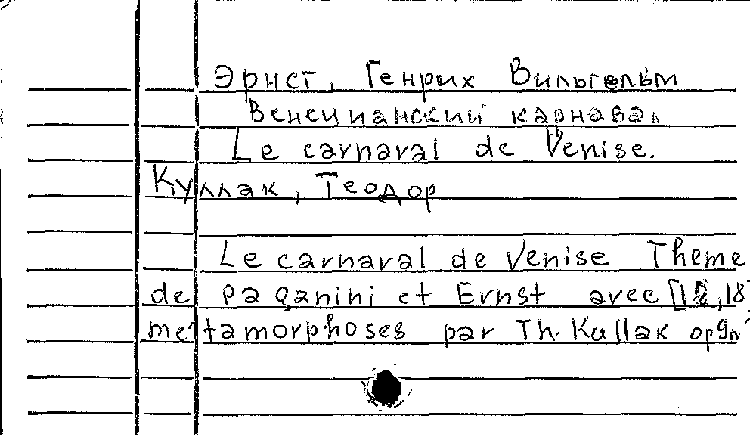 Эрнст, Генрих Вильгельм
Венецианский карнавал
Le carnaval de Venise.
Куллак, Теодор
Le carnaval de Venise Theme
de Paganini et Ernst avec
metamorphoses par Th. Kullak